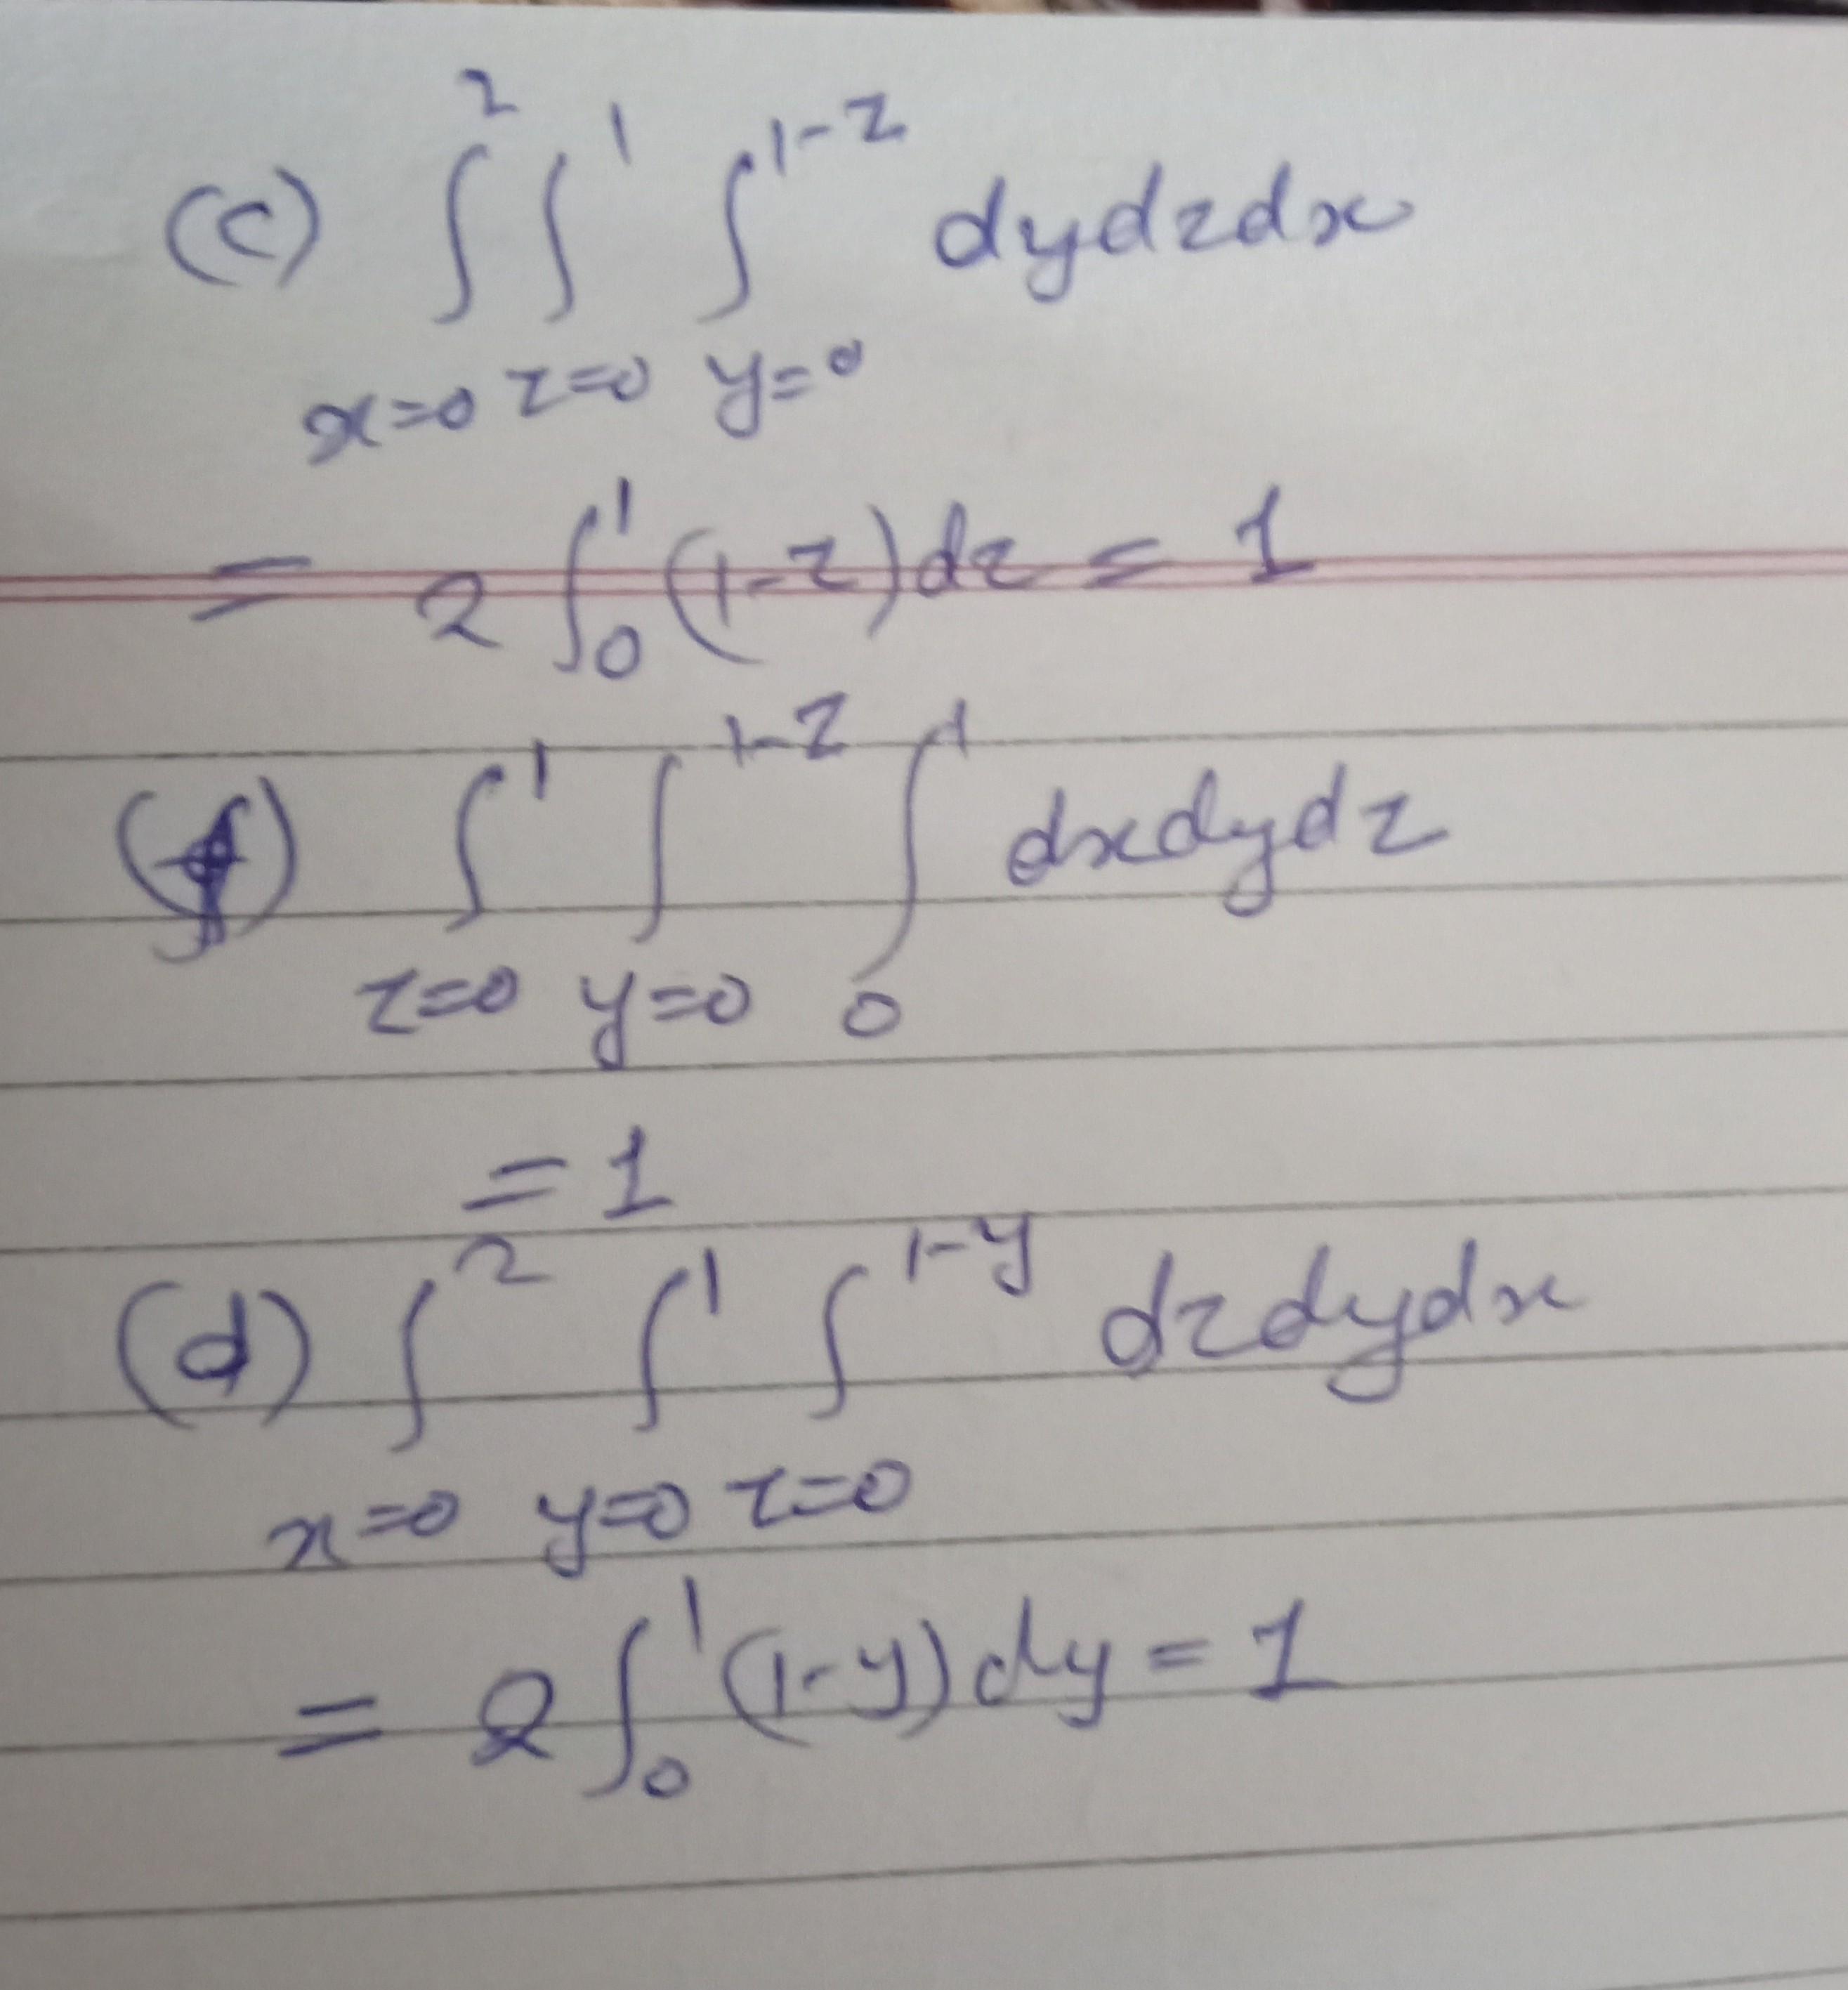 (c) ∫_{x=0}^{2} ∫_{z=0}^{1} ∫_{y=0}^{1-z} dydzdx
= 2 ∫_0^1 (1-z)dz = 1
(f) ∫_{z=0}^{1} ∫_{y=0}^{1-z} ∫_0^1 dxdydz
= 1
(d) ∫_{x=0}^{2} ∫_{y=0}^{1} ∫_{z=0}^{1-y} dzdydx
= 2 ∫_0^1 (1-y)dy = 1